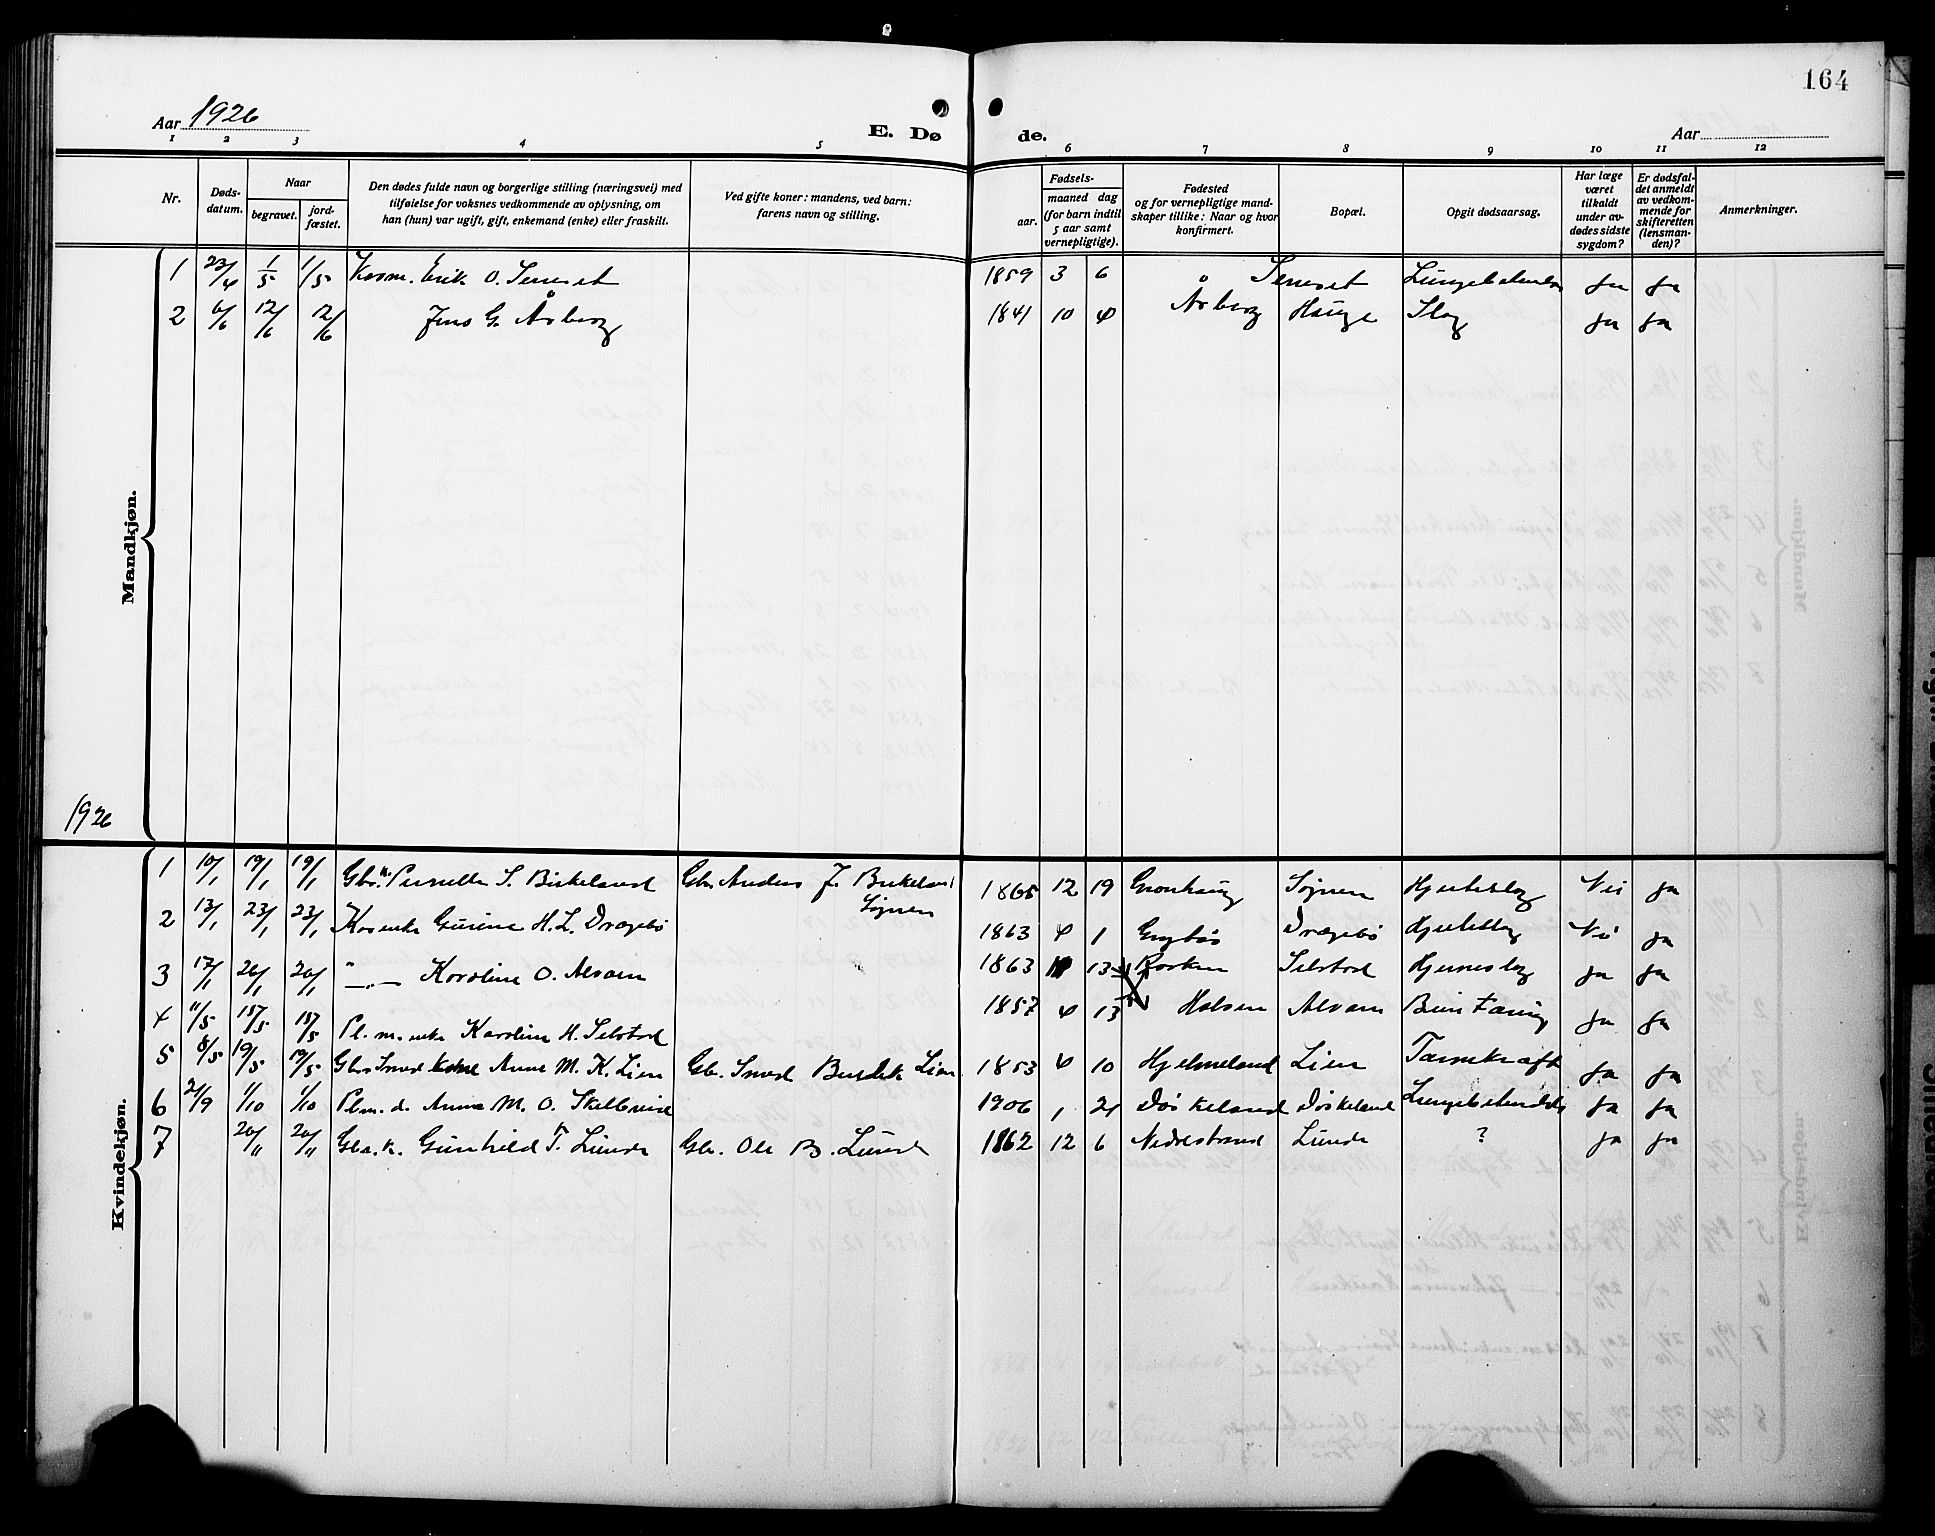 164
Aar 1926
E. Dø de.
Aar
1 2 3 4 5 6 7 8 9 10 11 12
Nr.
Døds-
datum.
Naar
begravet.
jord-
fæstet.
Den dødes fulde navn og borgerlige stilling (næringsvei) med
tilføielse for voksnes vedkommende av oplysning, om
han (hun) var ugift, gift, enkemand (enke) eller fraskilt.
Ved gifte koner: mandens, ved barn:
farens navn og stilling.
Fødsels-
aar. maaned dag
(for barn indtil
5 aar samt
vernepligtige).
Fødested
og for vernepligtige mand-
skaper tillike: Naar og hvor
konfirmert.
Bopæl.
Opgit dødsaarsag.
Har læge
været
tilkaldt
under av-
dødes sidste
sygdom?
Er dødsfal-
det anmeldt
av vedkom-
mende for
skifteretten
(lensman-
den)?
Anmerkninger.
Mandkjøn.
1 23/4 1/5 1/5 Erik O. Seneset 1859 3 6 Seneset ja ja
2 6/6 12/6 12/6 Jens G. Årberg 1841 10 4 Årberg Hauge Slag ja ja
1926
Kvindekjøn.
1 10/1 19/1 19/1 Gbr.k. Pernille S. Birkeland Gbr. Anders J. Birkeland 1865 12 19 Grønhaug Søgnen Hjerteslag Nei ja
Søgnen
2 13/1 23/1 23/1 Kaarenke Gurine H. L. Dragebø 1863 4 1 Dragebø Hjerteslag Nei ja
3 17/1 26/1 26/1 —"— Karoline O. Alvarn 1863 13 Selstad Hjerneslag ja ja
4 11/5 15/5 15/5 Pl. m. enke Karoline H. Selstad 1857 4 13 Alvarn ja ja
5 8/5 19/5 19/5 Anne M. K. Lien Gbr. Smed Lien 1853 4 10 Hjelmeland Lien Tarmkræft ja ja
6 21/9 1/10 1/10 Plm. d. Anna M. O. 1906 1 21 Døskeland Døskeland ja ja
7 20/11 20/11 Gbr. k. Gunhild T. Lunde Gbr. Ole B. Lunde 1862 12 6 Nedrestrand Lunde ? ja ja